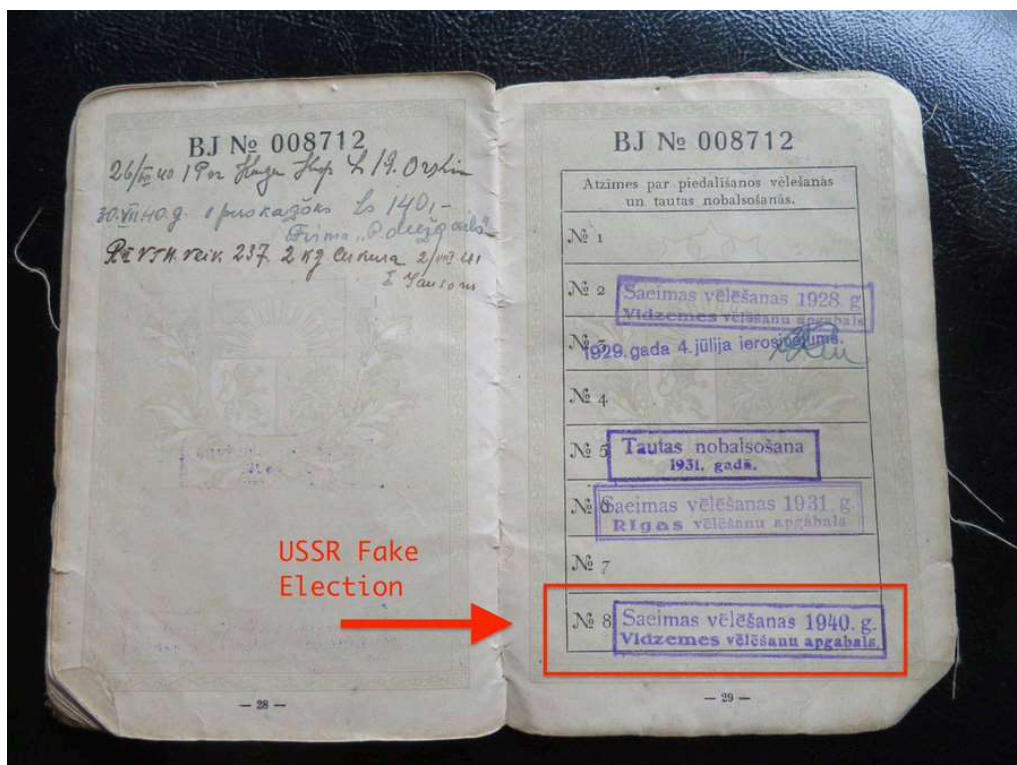 BJ № 008712
26/VII 40 1 Por
30.VII.40.g. 1 puskažoks Ls 140,-
Firma
veik. 237. 2 kg cukura 2/VIII 41
USSR Fake
Election
— 28 —
BJ № 008712
Atzīmes par piedalīšanos vēlēšanās
un tautas nobalsošanās.
№ 1
№ 2 Saeimas vēlēšanas 1928. g.
Vidzemes vēlēšanu apgabals
№ 3
1929. gada 4. jūlija ierosinājums.
№ 4
№ 5 Tautas nobalsošana
1931. gadā.
№ 6 Saeimas vēlēšanas 1931. g.
Rīgas vēlēšanu apgabals
№ 7
№ 8 Saeimas vēlēšanas 1940. g.
Vidzemes vēlēšanu apgabals.
— 29 —